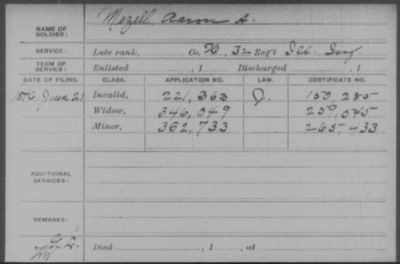 NAME OF SOLDIER: Mezell Aaron A.
SERVICE: Late rank, Co. H, 32 Reg't Ill. Inf.
TERM OF SERVICE: Enlisted , 1 Discharged , 1
DATE OF FILING. CLASS. APPLICATION NO. LAW. CERTIFICATE NO.
1876 June 21 Invalid, 221,363 J. 159,285
Widow, 346,049 259,045
Minor, 362,733 265,433
ADDITIONAL SERVICES:
REMARKS:
Died , 1 , at